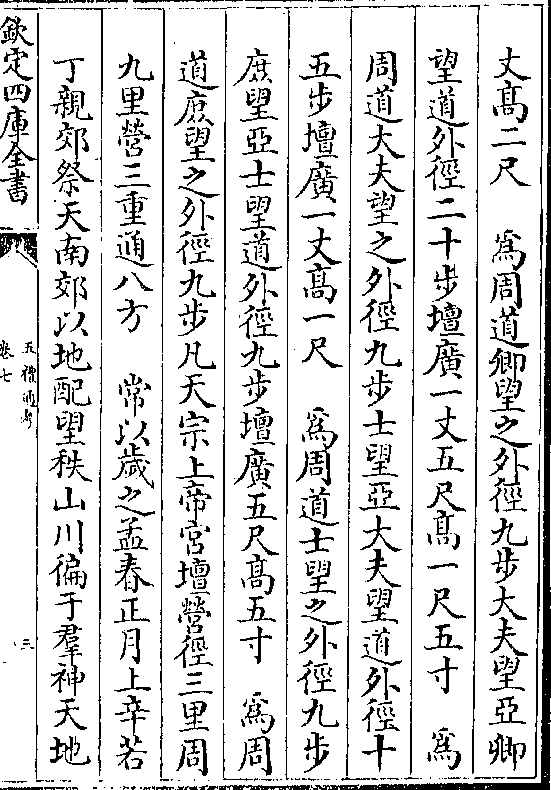 丈髙二尺　為周道卿望之外徑九步大夫望亞卿
望道外徑二十步壇廣一丈五尺髙一尺五寸　為
周道大夫望之外徑九步士望亞大夫望道外徑十
五步壇廣一丈髙一尺　為周道士望之外徑九步
庶望亞士望道外徑九步壇廣五尺髙五寸　為周
道庶望之外徑九步凡天宗上帝宫壇營徑三里周
九里營三重通八方　常以歲之孟春正月上辛若
丁親郊祭天南郊以地配望秩山川徧于羣神天地
欽定四庫全書
五禮通考
卷七
三